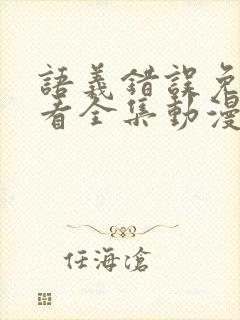 語義錯誤免
看全集動漫
任海滄